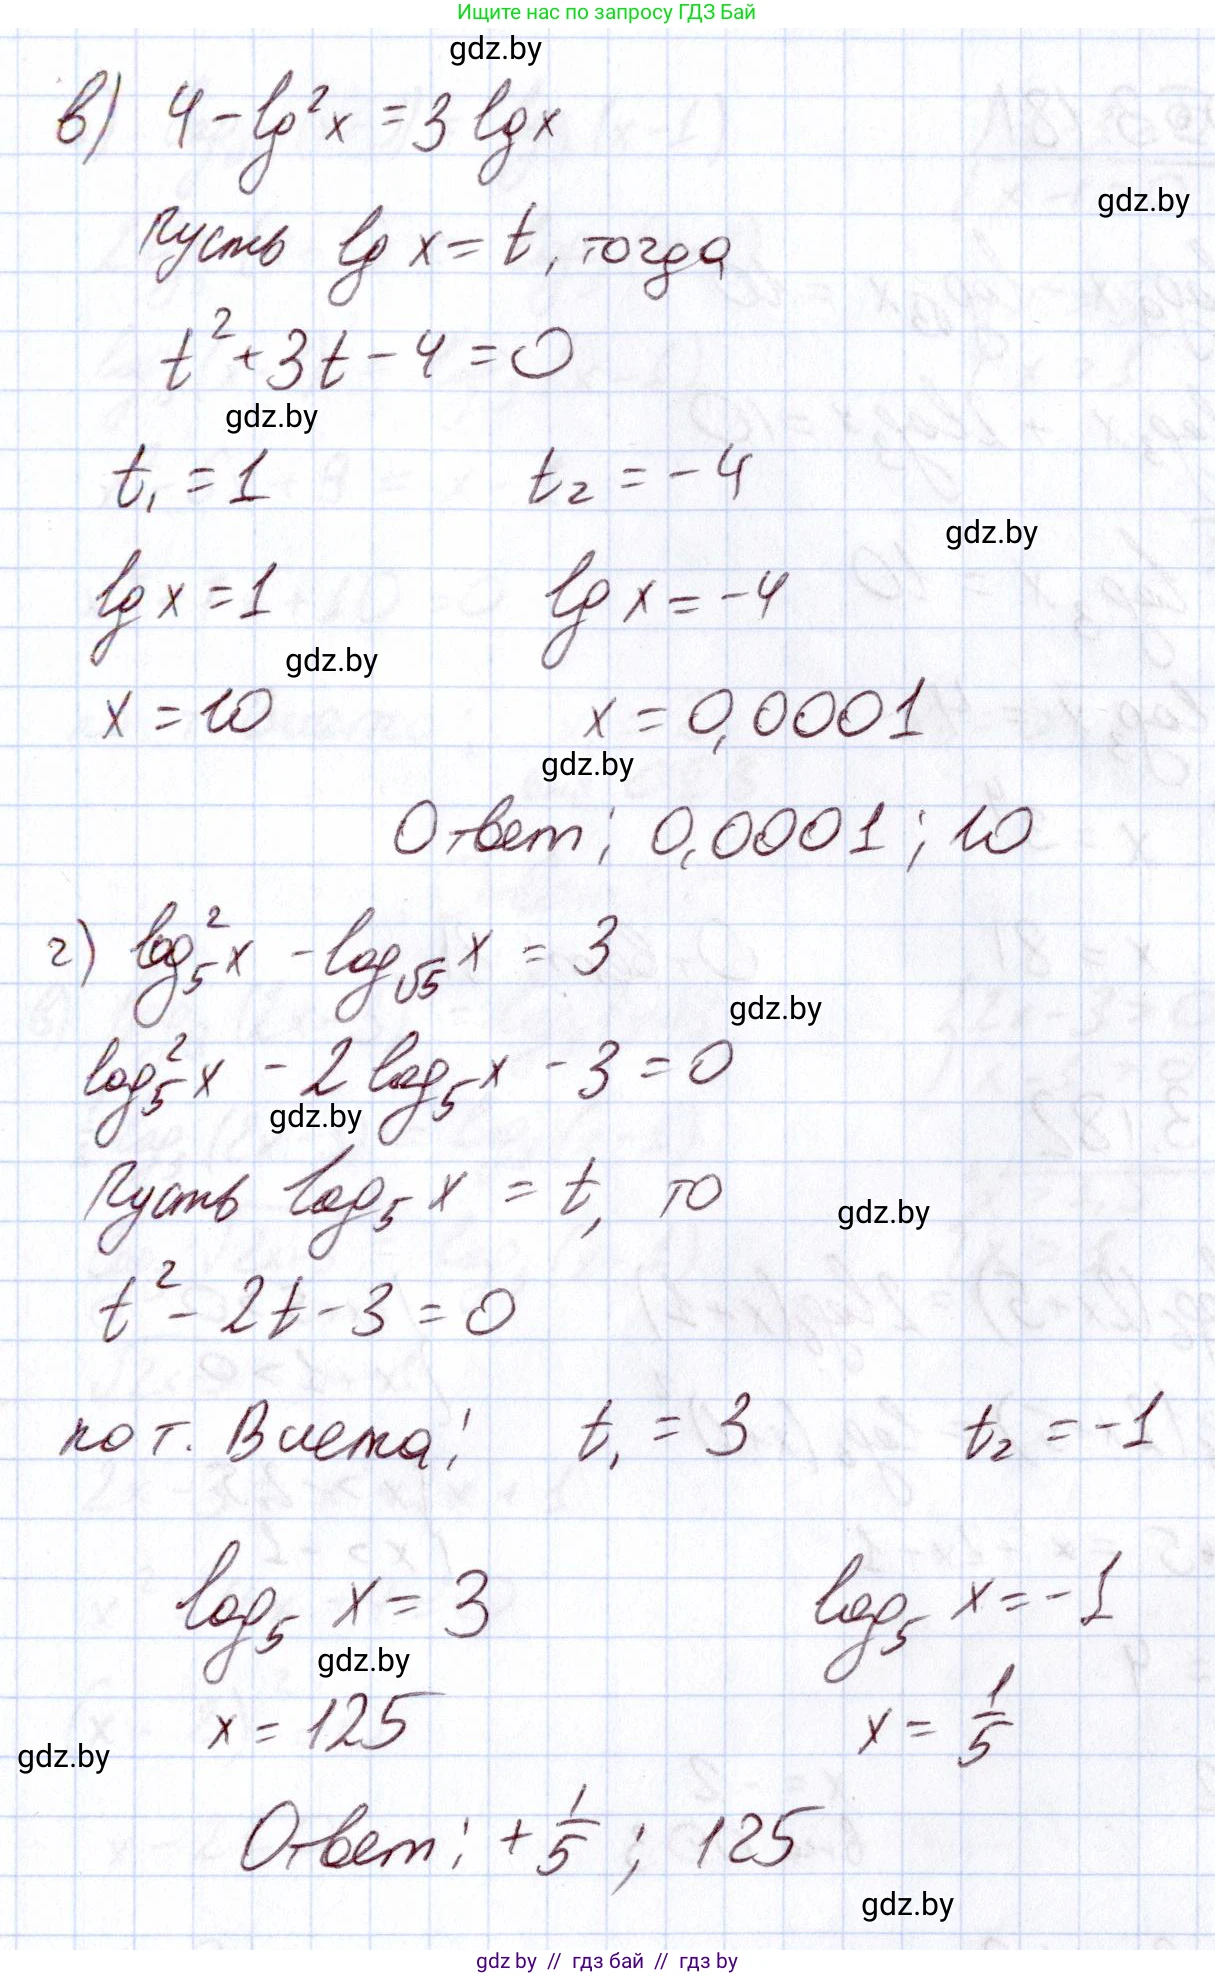 Ищите нас по запросу ГДЗ Бай
gdz.by
в) 4 - lg²x = 3 lg x
gdz.by
Пусть lg x = t, тогда
t² + 3t - 4 = 0
gdz.by
t₁ = 1 t₂ = -4
gdz.by
lg x = 1 lg x = -4
gdz.by
x = 10 x = 0,0001
gdz.by
Ответ: 0,0001; 10
г) log₅²x - log_√5 x = 3
gdz.by
log₅²x - 2 log₅x - 3 = 0
gdz.by
Пусть log₅ x = t, то
gdz.by
t² - 2t - 3 = 0
по т. Виета: t₁ = 3 t₂ = -1
log₅ x = 3 log₅ x = -1
gdz.by
x = 125 x = 1/5
gdz.by
Ответ: + 1/5; 125
gdz.by
gdz by // гдз бай // гдз by